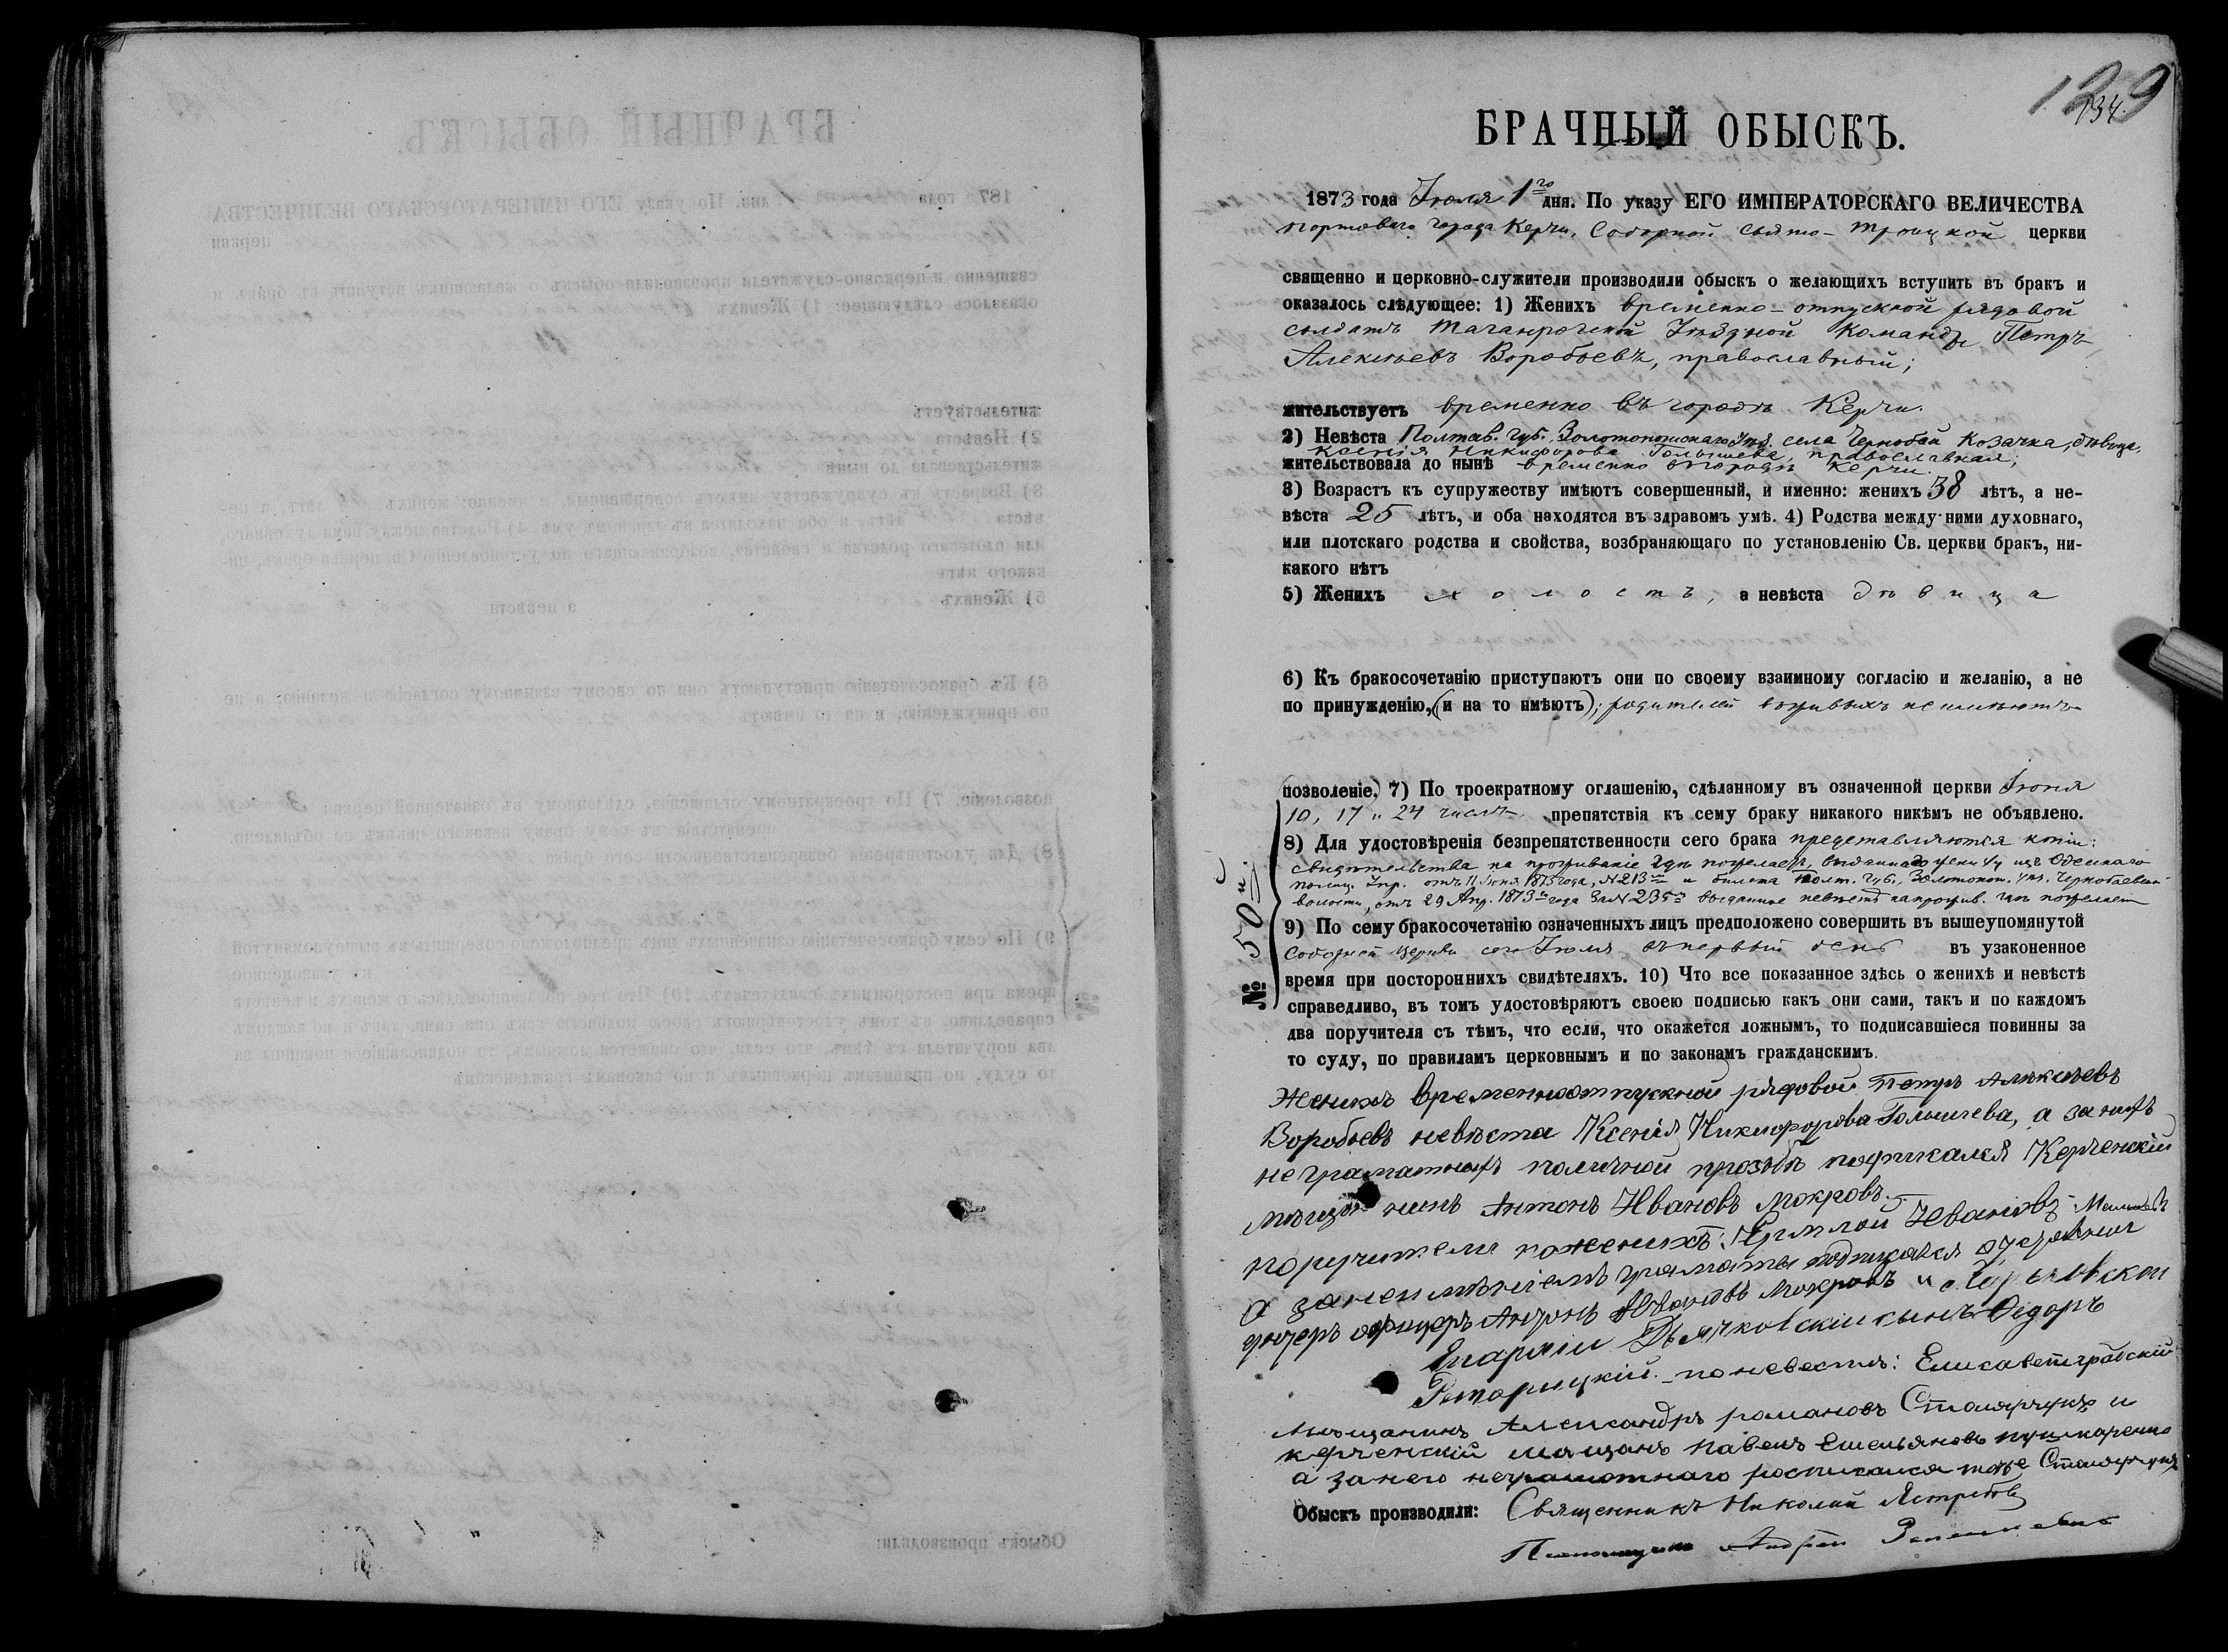 129
134.
БРАЧНЫЙ ОБЫСКЪ.
1873 года Іюля 1го дня. По указу ЕГО ИМПЕРАТОРСКАГО ВЕЛИЧЕСТВА
портоваго города Керчи, Соборной Свято-Троицкой церкви
священно и церковно-служители производили обыскъ о желающихъ вступить въ бракъ и
оказалось слѣдующее: 1) Женихъ временно-отпускной рядовой
солдатъ Таганрогской Уѣздной Команды Петръ
Алексѣевъ Воробьевъ, православный;
жительствуетъ временно въ городѣ Керчи.
2) Невѣста Полтав. губ. Золотоношскаго Уѣз. села Чернобай козачка, дѣвица,
Ксенія Никифорова Голышева, православная;
жительствовала до нынѣ временно въ городѣ Керчи.
3) Возрастъ къ супружеству имѣютъ совершенный, и именно: женихъ 38 лѣтъ, а не-
вѣста 25 лѣтъ, и оба находятся въ здравомъ умѣ. 4) Родства между ними духовнаго,
или плотскаго родства и свойства, возбраняющаго по установленію Св. церкви бракъ, ни-
какого нѣтъ
5) Женихъ холостъ, а невѣста дѣвица
6) Къ бракосочетанію приступаютъ они по своему взаимному согласію и желанію, а не
по принужденію, (и на то имѣютъ); родителей въ живыхъ не имѣютъ
(позволеніе,) 7) По троекратному оглашенію, сдѣланному въ означенной церкви Іюня
10, 17 и 24 числъ препятствія къ сему браку никакого никѣмъ не объявлено.
8) Для удостовѣренія безпрепятственности сего брака представляются копіи:
свидѣтельства на проживаніе гдѣ пожелаетъ, выданнаго жениху изъ Одесскаго
полиц. Упр. отъ 11 Іюня 1873 года, № 213 и билета Полт. губ., Золотонош. уѣз. Чернобаевской
волости, отъ 29 Апр. 1873го года за № 235 выданное невѣстѣ на прожив. гдѣ пожелаетъ
9) По сему бракосочетанію означенныхъ лицъ предположено совершить въ вышеупомянутой
Соборной церкви сего Іюля въ первый день въ узаконенное
время при постороннихъ свидѣтеляхъ. 10) Что все показанное здѣсь о женихѣ и невѣстѣ
справедливо, въ томъ удостовѣряютъ своею подписью какъ они сами, такъ и по каждомъ
два поручителя съ тѣмъ, что если, что окажется ложнымъ, то подписавшіеся повинны за
то суду, по правиламъ церковнымъ и по законамъ гражданскимъ.
№ 50й.
Женихъ временноотпускной рядовой Петръ Алѣксѣевъ
Воробьевъ невѣста Ксенія Никифорова Голышева, а за нихъ
неграматныхъ по личной прозьбѣ подписался Керченскій
мѣщанинъ Антонъ Ивановъ Мокровъ.
поручители по женихѣ: Ермлой Ивановъ
а за неимѣніемъ граматы подписался
унтеръ офицеръ Антонъ Ивановъ Мокровъ и
Епархіи Дьячковскій сынъ Ѳедоръ
по невестѣ: Елисаветградскій
мѣщанинъ Александръ Романовъ Столярчукъ и
керченскій мѣщанъ Павелъ Емельяновъ Пушкаренко
а за него неграмотнаго росписался тотже Столярчукъ
Обыскъ производили: Священникъ Николай Ястребовъ
Андрей